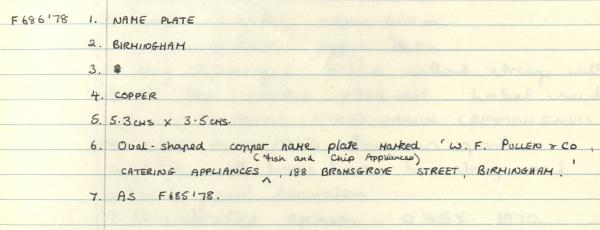 F686'78 1. NAME PLATE
2. BIRMINGHAM
3.
4. COPPER
5. 5.3cms x 3.5cms.
6. Oval-shaped copper name plate marked 'W. F. PULLEN & Co,
(Fish and Chip Appliances)
CATERING APPLIANCES ^, 188 BROMSGROVE STREET, BIRMINGHAM.'
7. AS F685'78.